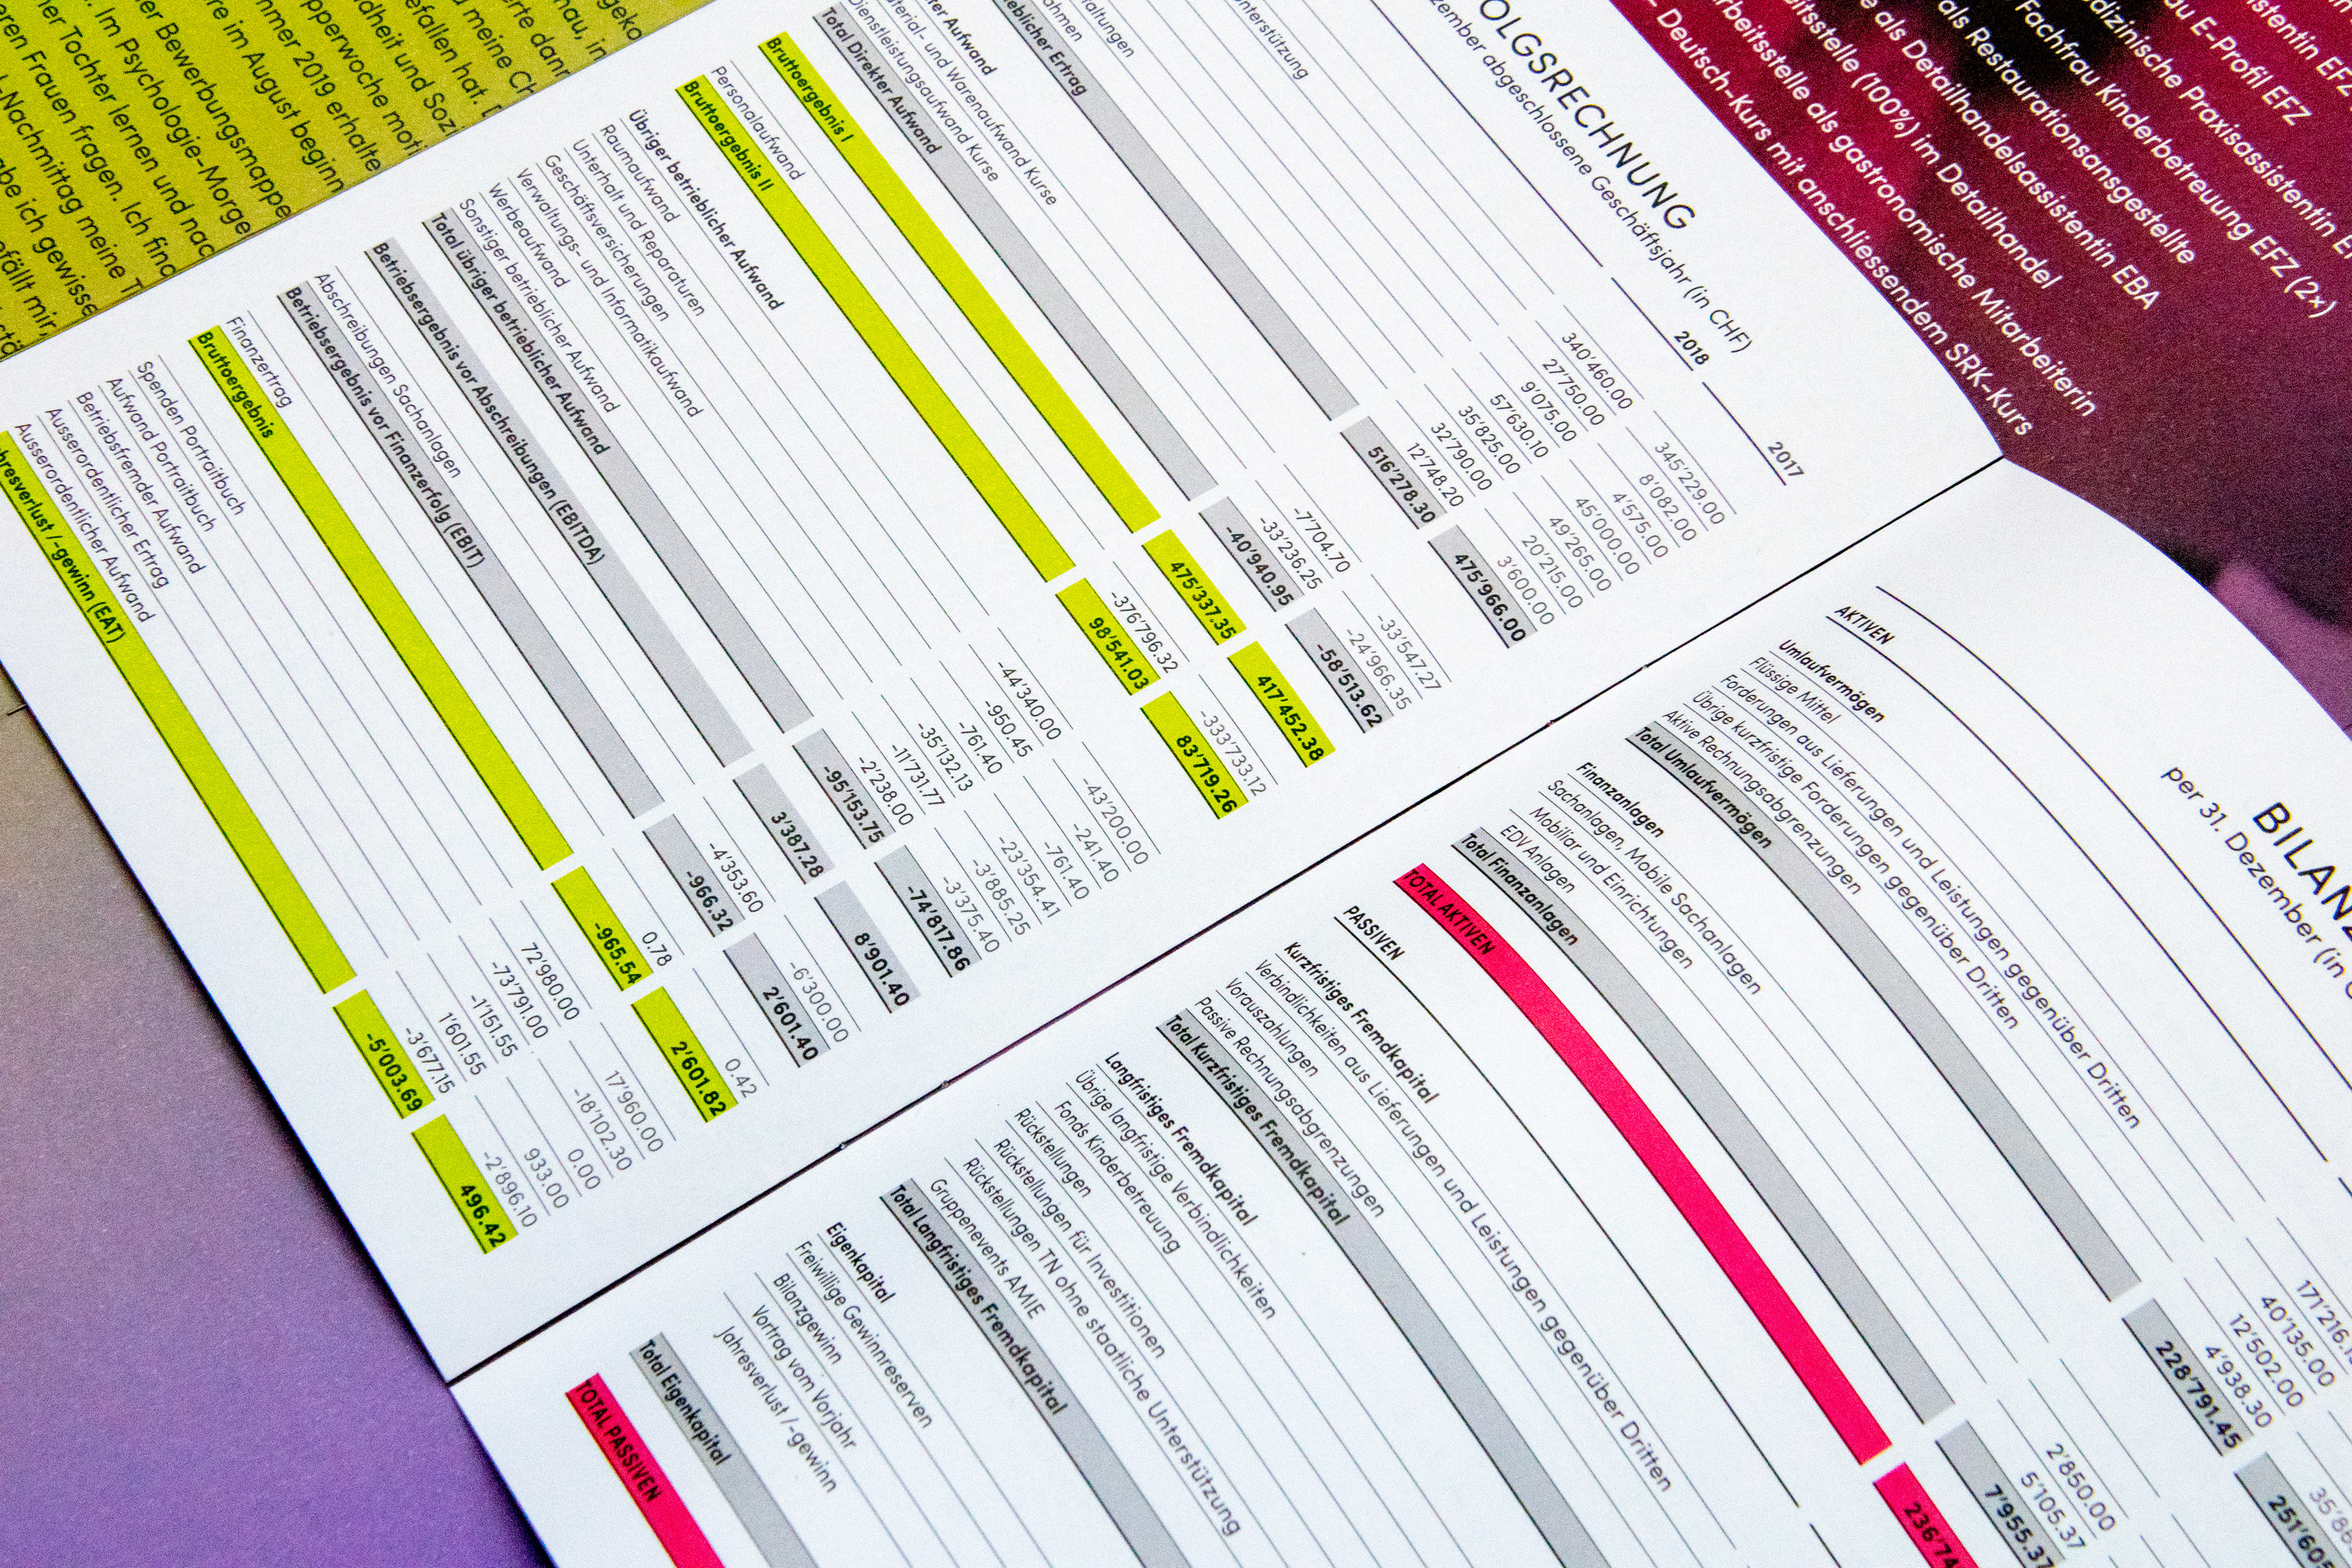 geko
nau, in
erte dann
d meine Ch
efallen hat. D
dheit und Sozi
pperwoche moti
mmer 2019 erhalte
re im August beginn
er Bewerbungsmappe
. Im Psychologie-Morge
er Tochter lernen und nac
ren Frauen fragen. Ich finc
-Nachmittag meine T
abe ich gewisse
efällt mir,
OLGSRECHNUNG
zember abgeschlossene Geschäftsjahr (in CHF)
2018 2017
340'460.00 345'229.00
27'750.00 8'082.00
9'075.00 4'575.00
57'630.10 45'000.00
35'825.00 49'265.00
32'790.00 20'215.00
12'748.20 3'600.00
nterstützung
altungen
ahmen
eblicher Ertrag 516'278.30 475'966.00
er Aufwand
terial- und Warenaufwand Kurse -7'704.70 -33'547.27
Dienstleistungsaufwand Kurse -33'236.25 -24'966.35
Total Direkter Aufwand -40'940.95 -58'513.62
Bruttoergebnis I 475'337.35 417'452.38
Personalaufwand -376'796.32 -333'733.12
Bruttoergebnis II 98'541.03 83'719.26
Übriger betrieblicher Aufwand
Raumaufwand -44'340.00 -43'200.00
Unterhalt und Reparaturen -950.45 -241.40
Geschäftsversicherungen -761.40 -761.40
Verwaltungs- und Informatikaufwand -35'132.13 -23'354.41
Werbeaufwand -11'731.77 -3'885.25
Sonstiger betrieblicher Aufwand -2'238.00 -3'375.40
Total übriger betrieblicher Aufwand -95'153.75 -74'817.86
Betriebsergebnis vor Abschreibungen (EBITDA) 3'387.28 8'901.40
Abschreibungen Sachanlagen -4'353.60 -6'300.00
Betriebsergebnis vor Finanzerfolg (EBIT) -966.32 2'601.40
Finanzertrag 0.78 0.42
Bruttoergebnis -965.54 2'601.82
Spenden Portraitbuch 72'980.00 17'960.00
Aufwand Portraitbuch -73'791.00 -18'102.30
Betriebsfremder Aufwand -1'151.55 0.00
Ausserordentlicher Ertrag 1'601.55 933.00
Ausserordentlicher Aufwand -3'677.15 -2'896.10
hresverlust /-gewinn (EAT) -5'003.69 496.42
BILANZ
per 31. Dezember (in C
AKTIVEN
Umlaufvermögen
Flüssige Mittel 171'216.1
Forderungen aus Lieferungen und Leistungen gegenüber Dritten 40'135.00
Übrige kurzfristige Forderungen gegenüber Dritten 12'502.00
Aktive Rechnungsabgrenzungen 4'938.30 35'8
Total Umlaufvermögen 228'791.45 251'60
Finanzanlagen
Sachanlagen, Mobile Sachanlagen
Mobiliar und Einrichtungen 2'850.00
EDV Anlagen 5'105.37
Total Finanzanlagen 7'955.37
TOTAL AKTIVEN 236'74
PASSIVEN
Kurzfristiges Fremdkapital
Verbindlichkeiten aus Lieferungen und Leistungen gegenüber Dritten
Vorauszahlungen
Passive Rechnungsabgrenzungen
Total Kurzfristiges Fremdkapital
Langfristiges Fremdkapital
Übrige langfristige Verbindlichkeiten
Fonds Kinderbetreuung
Rückstellungen
Rückstellungen für Investitionen
Rückstellungen TN ohne staatliche Unterstützung
Gruppenevents AMIE
Total Langfristiges Fremdkapital
Eigenkapital
Freiwillige Gewinnreserven
Bilanzgewinn
Vortrag vom Vorjahr
Jahresverlust /-gewinn
Total Eigenkapital
TOTAL PASSIVEN
istentin EFZ
au E-Profil EFZ
dizinische Praxisassistentin E
Fachfrau Kinderbetreuung EFZ (2×)
als Restaurationsangestellte
e als Detailhandelsassistentin EBA
itsstelle (100%) im Detailhandel
rbeitsstelle als gastronomische Mitarbeiterin
- Deutsch-Kurs mit anschliessendem SRK-Kurs